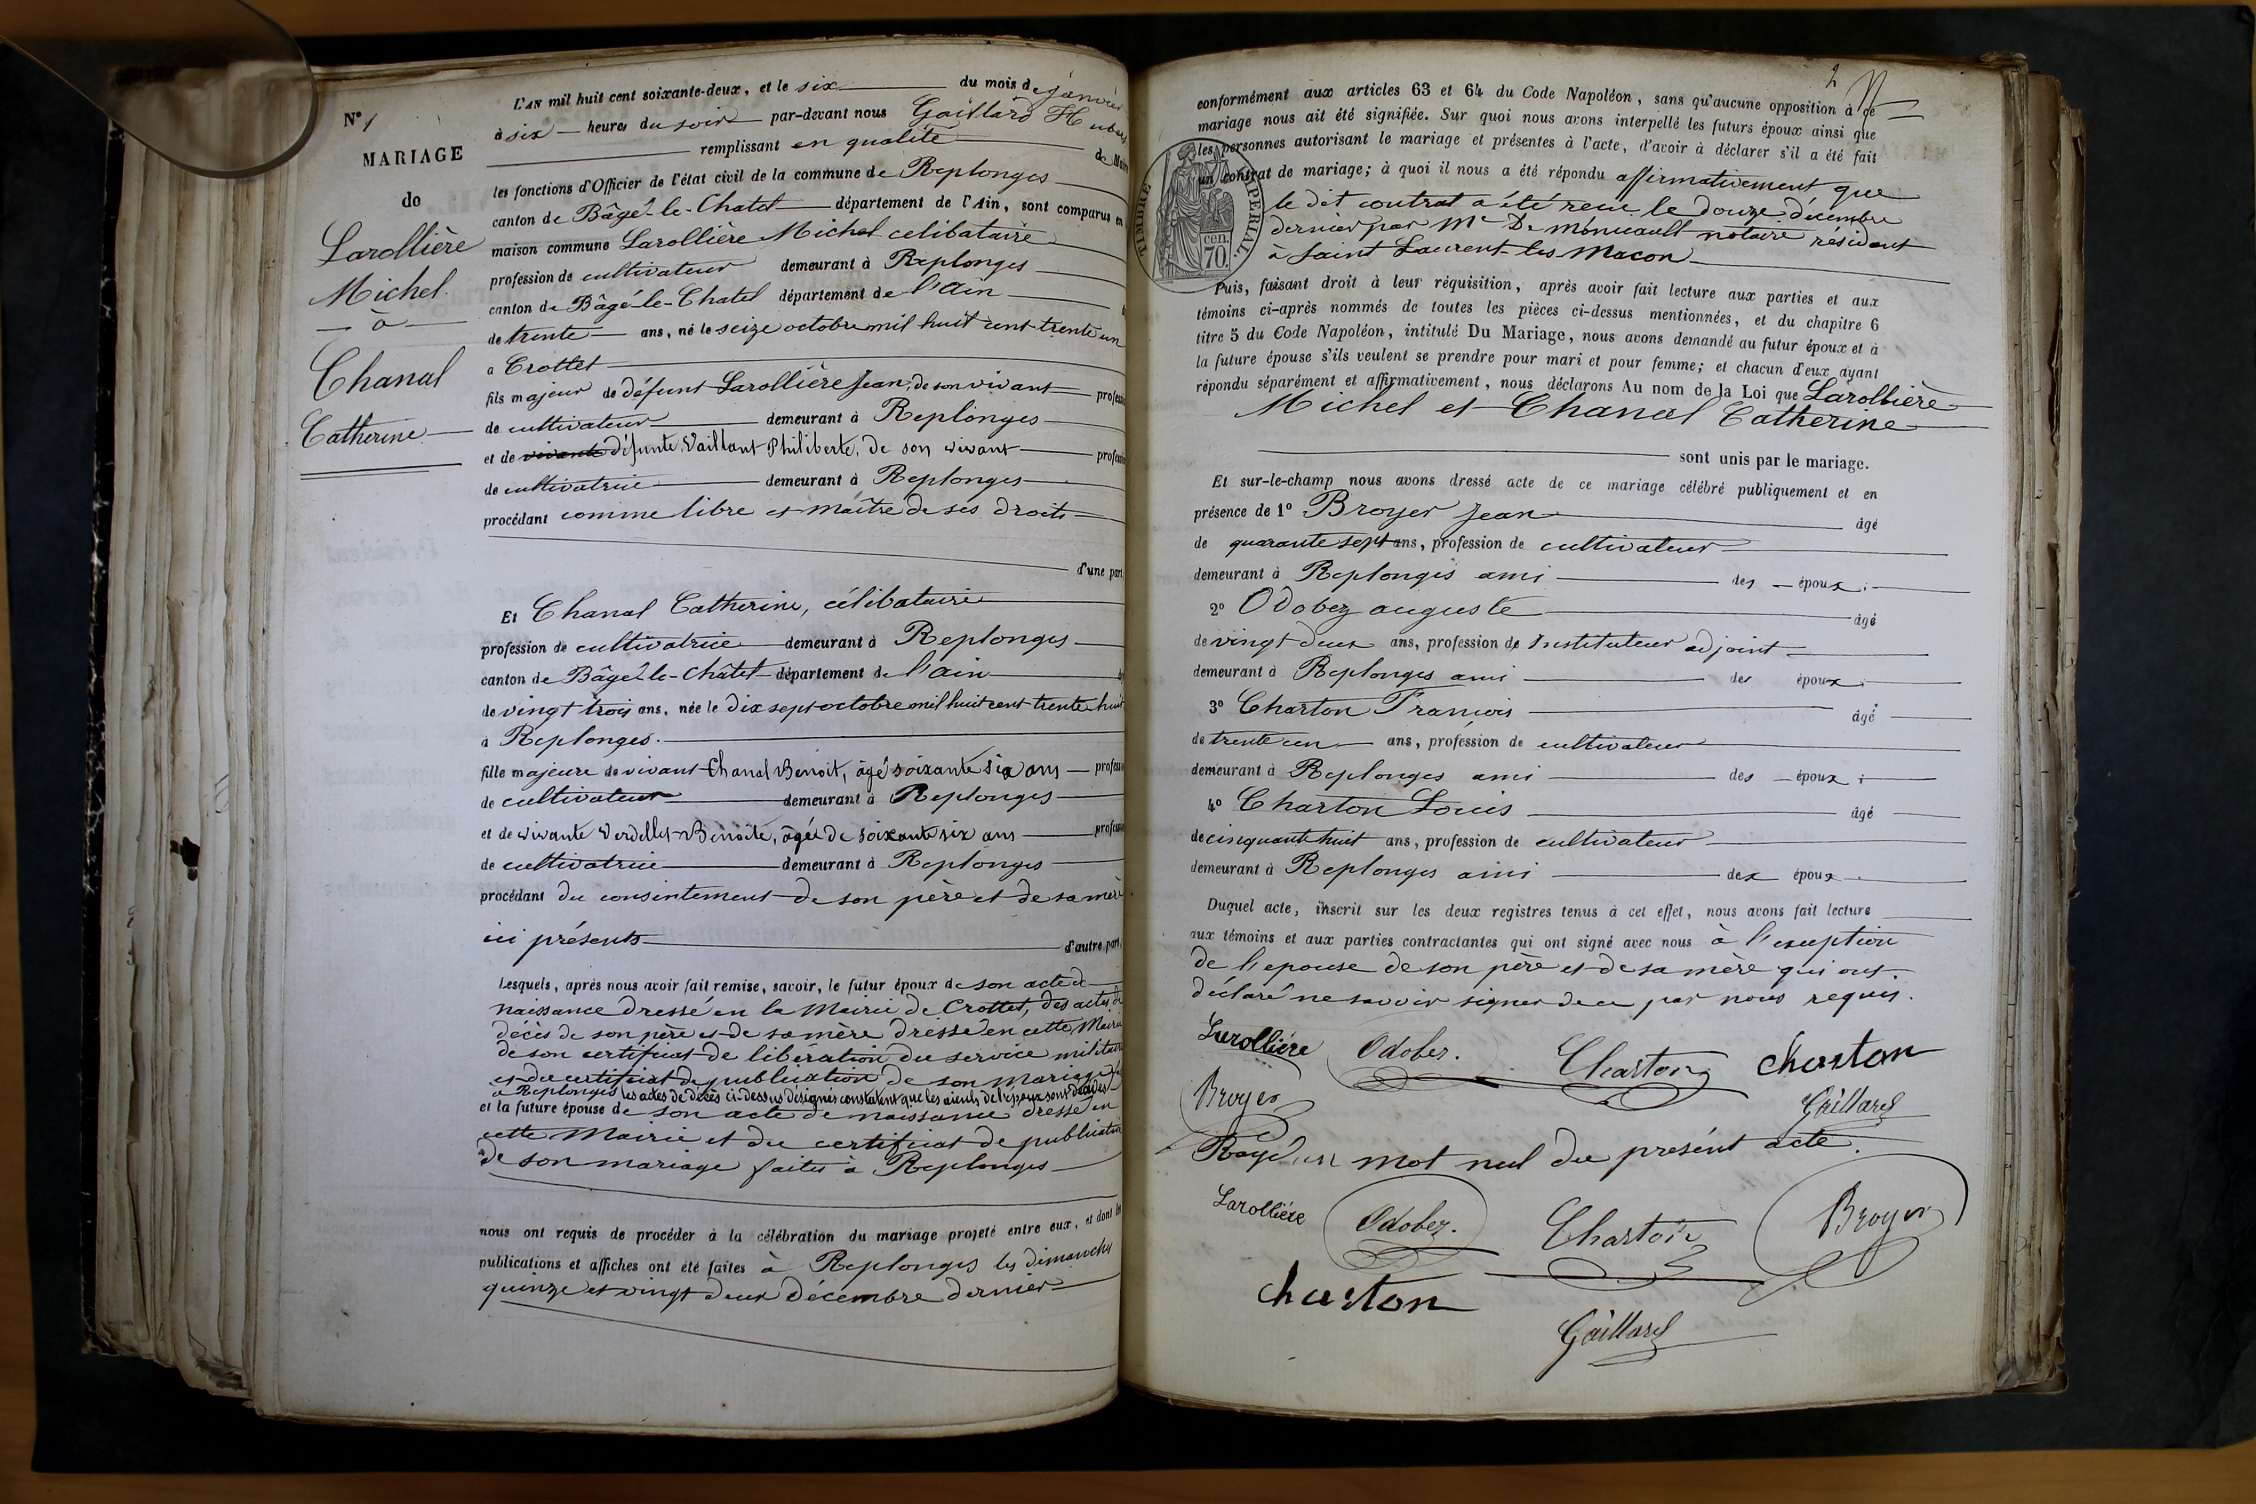 N° 1
MARIAGE
de
Larollière
Michel
à
Chanal
Catherine
L'AN mil huit cent soixante-deux, et le six du mois de janvier
à six heures du soir par-devant nous Gaillard Hubert
remplissant en qualité de Maire
les fonctions d'Officier de l'état civil de la commune de Replonges
canton de Bâgé-le-Chatel département de l'Ain, sont comparus en
maison commune Larollière Michel celibataire
profession de cultivateur demeurant à Replonges
canton de Bâgé-le-Chatel département de l'Ain
de trente ans, né le seize octobre mil huit cent trente un
à Crottet
fils majeur de défunt Larollière Jean, de son vivant profession
de cultivateur demeurant à Replonges
et de vivante défunte Vaillant Philiberte, de son vivant profession
de cultivatrice demeurant à Replonges
procédant comme libre et maître de ses droits
d'une part
Et Chanal Catherine, célibataire
profession de cultivatrice demeurant à Replonges
canton de Bâgé-le-Châtel département de l'Ain
de vingt trois ans, née le dix sept octobre mil huit cent trente huit
à Replonges.
fille majeure de vivant Chanal Benoit, âgé soixante six ans profession
de cultivateur demeurant à Replonges
et de vivante Verdellet Benoite, âgée de soixante six ans profession
de cultivatrice demeurant à Replonges
procédant du consentement de son père et de sa mère
ici présents d'autre part,
Lesquels, après nous avoir fait remise, savoir, le futur époux de son acte de
naissance dressé en la Mairie de Crottet, des actes de
décès de son père et de sa mère dressé en cette Mairie
de son certificat de libération du service militaire
et du certificat de publication de son mariage
à Replonges les actes de décès ci-dessus désignés constatent que les aïeuls de l'époux sont décédés
et la future épouse de son acte de naissance dressé en
cette Mairie et du certificat de publication
de son mariage faites à Replonges
nous ont requis de procéder à la célébration du mariage projeté entre eux, et dont les
publications et affiches ont été faites à Replonges les dimanches
quinze et vingt deux décembre dernier
2
conformément aux articles 63 et 64 du Code Napoléon, sans qu'aucune opposition à ce
mariage nous ait été signifiée. Sur quoi nous avons interpellé les futurs époux ainsi que
les personnes autorisant le mariage et présentes à l'acte, d'avoir à déclarer s'il a été fait
un contrat de mariage; à quoi il nous a été répondu affirmativement que
le dit contrat a été recu le douze décembre
dernier par Me notaire résidant
à Saint Laurent-les-Macon
TIMBRE IMPERIAL
70 cen.
Puis, faisant droit à leur réquisition, après avoir fait lecture aux parties et aux
témoins ci-après nommés de toutes les pièces ci-dessus mentionnées, et du chapitre 6
titre 5 du Code Napoléon, intitulé Du Mariage, nous avons demandé au futur époux et à
la future épouse s'ils veulent se prendre pour mari et pour femme; et chacun d'eux ayant
répondu séparément et affirmativement, nous déclarons Au nom de la Loi que Larollière
Michel et Chanal Catherine
sont unis par le mariage.
Et sur-le-champ nous avons dressé acte de ce mariage célébré publiquement et en
présence de 1° Broyer Jean âgé
de quarante sept ans, profession de cultivateur
demeurant à Replonges ami des époux;
2° Odobez auguste âgé
de vingt deux ans, profession de Instituteur adjoint
demeurant à Replonges ami des époux;
3° Charton François âgé
de trente un ans, profession de cultivateur
demeurant à Replonges ami des époux;
4° Charton Louis âgé
de cinquante huit ans, profession de cultivateur
demeurant à Replonges ami des époux
Duquel acte, inscrit sur les deux registres tenus à cet effet, nous avons fait lecture
aux témoins et aux parties contractantes qui ont signé avec nous à l'exception
de l'epouse de son père et de sa mère qui ont
déclaré ne savoir signer de ce par nous requis.
Larollière Odobez. Charton Charton
Broyer Gaillard
Rayé un mot nul du present acte.
Larollière Odobez. Charton Broyer
Charton
Gaillard